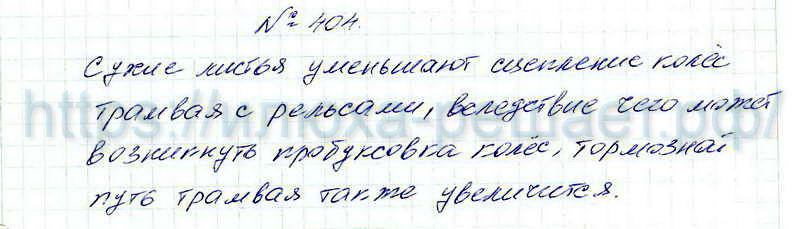 № 404.
Сухие листья уменьшают сцепление колёс
трамвая с рельсами, вследствие чего может
возникнуть пробуксовка колёс, тормозной
путь трамвая также увеличится.
https://илюха-решает.рф/